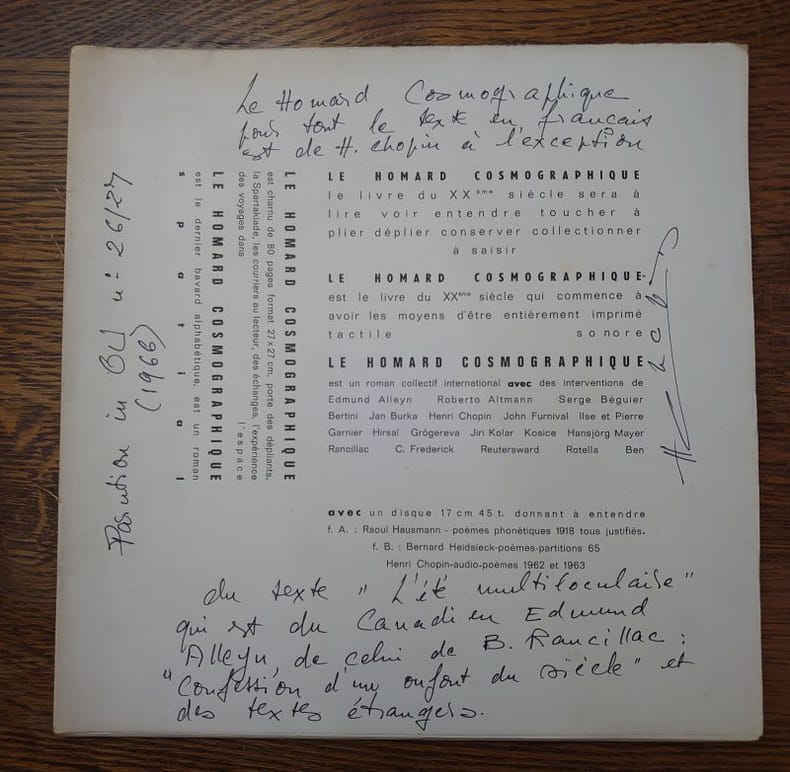 Le Homard Cosmographique
pour tout le texte en français
est de H. Chopin à l'exception
LE HOMARD COSMOGRAPHIQUE
le livre du XXème siècle sera à
lire voir entendre toucher à
plier déplier conserver collectionner
à saisir
LE HOMARD COSMOGRAPHIQUE
est le livre du XXème siècle qui commence à
avoir les moyens d'être entièrement imprimé
tactile sonore
LE HOMARD COSMOGRAPHIQUE
est un roman collectif international avec des interventions de
Edmund Alleyn Roberto Altmann Serge Béguier
Bertini Jan Burka Henri Chopin John Furnival Ilse et Pierre
Garnier Hirsal Grögereva Jiri Kolar Kosice Hansjörg Mayer
Rancillac C. Frederick Reutersward Rotella Ben
avec un disque 17 cm 45 t. donnant à entendre
f. A. : Raoul Hausmann - poèmes phonétiques 1918 tous justifiés.
f. B. : Bernard Heidsieck-poèmes-partitions 65
Henri Chopin-audio-poèmes 1962 et 1963
LE HOMARD COSMOGRAPHIQUE
est charnu de 80 pages format 27 x 27 cm, porte des dépliants,
la Spartakiade, les courriers au lecteur, des échanges, l'expérience
des voyages dans l'espace
LE HOMARD COSMOGRAPHIQUE
est le dernier bavard alphabétique, est un roman
spatial
Parution in OU n° 26/27
(1966)
du texte "L'été multiloculaire"
qui est du Canadien Edmund
Alleyn, de celui de B. Rancillac :
"Confession d'un enfant du siècle" et
des textes étrangers.